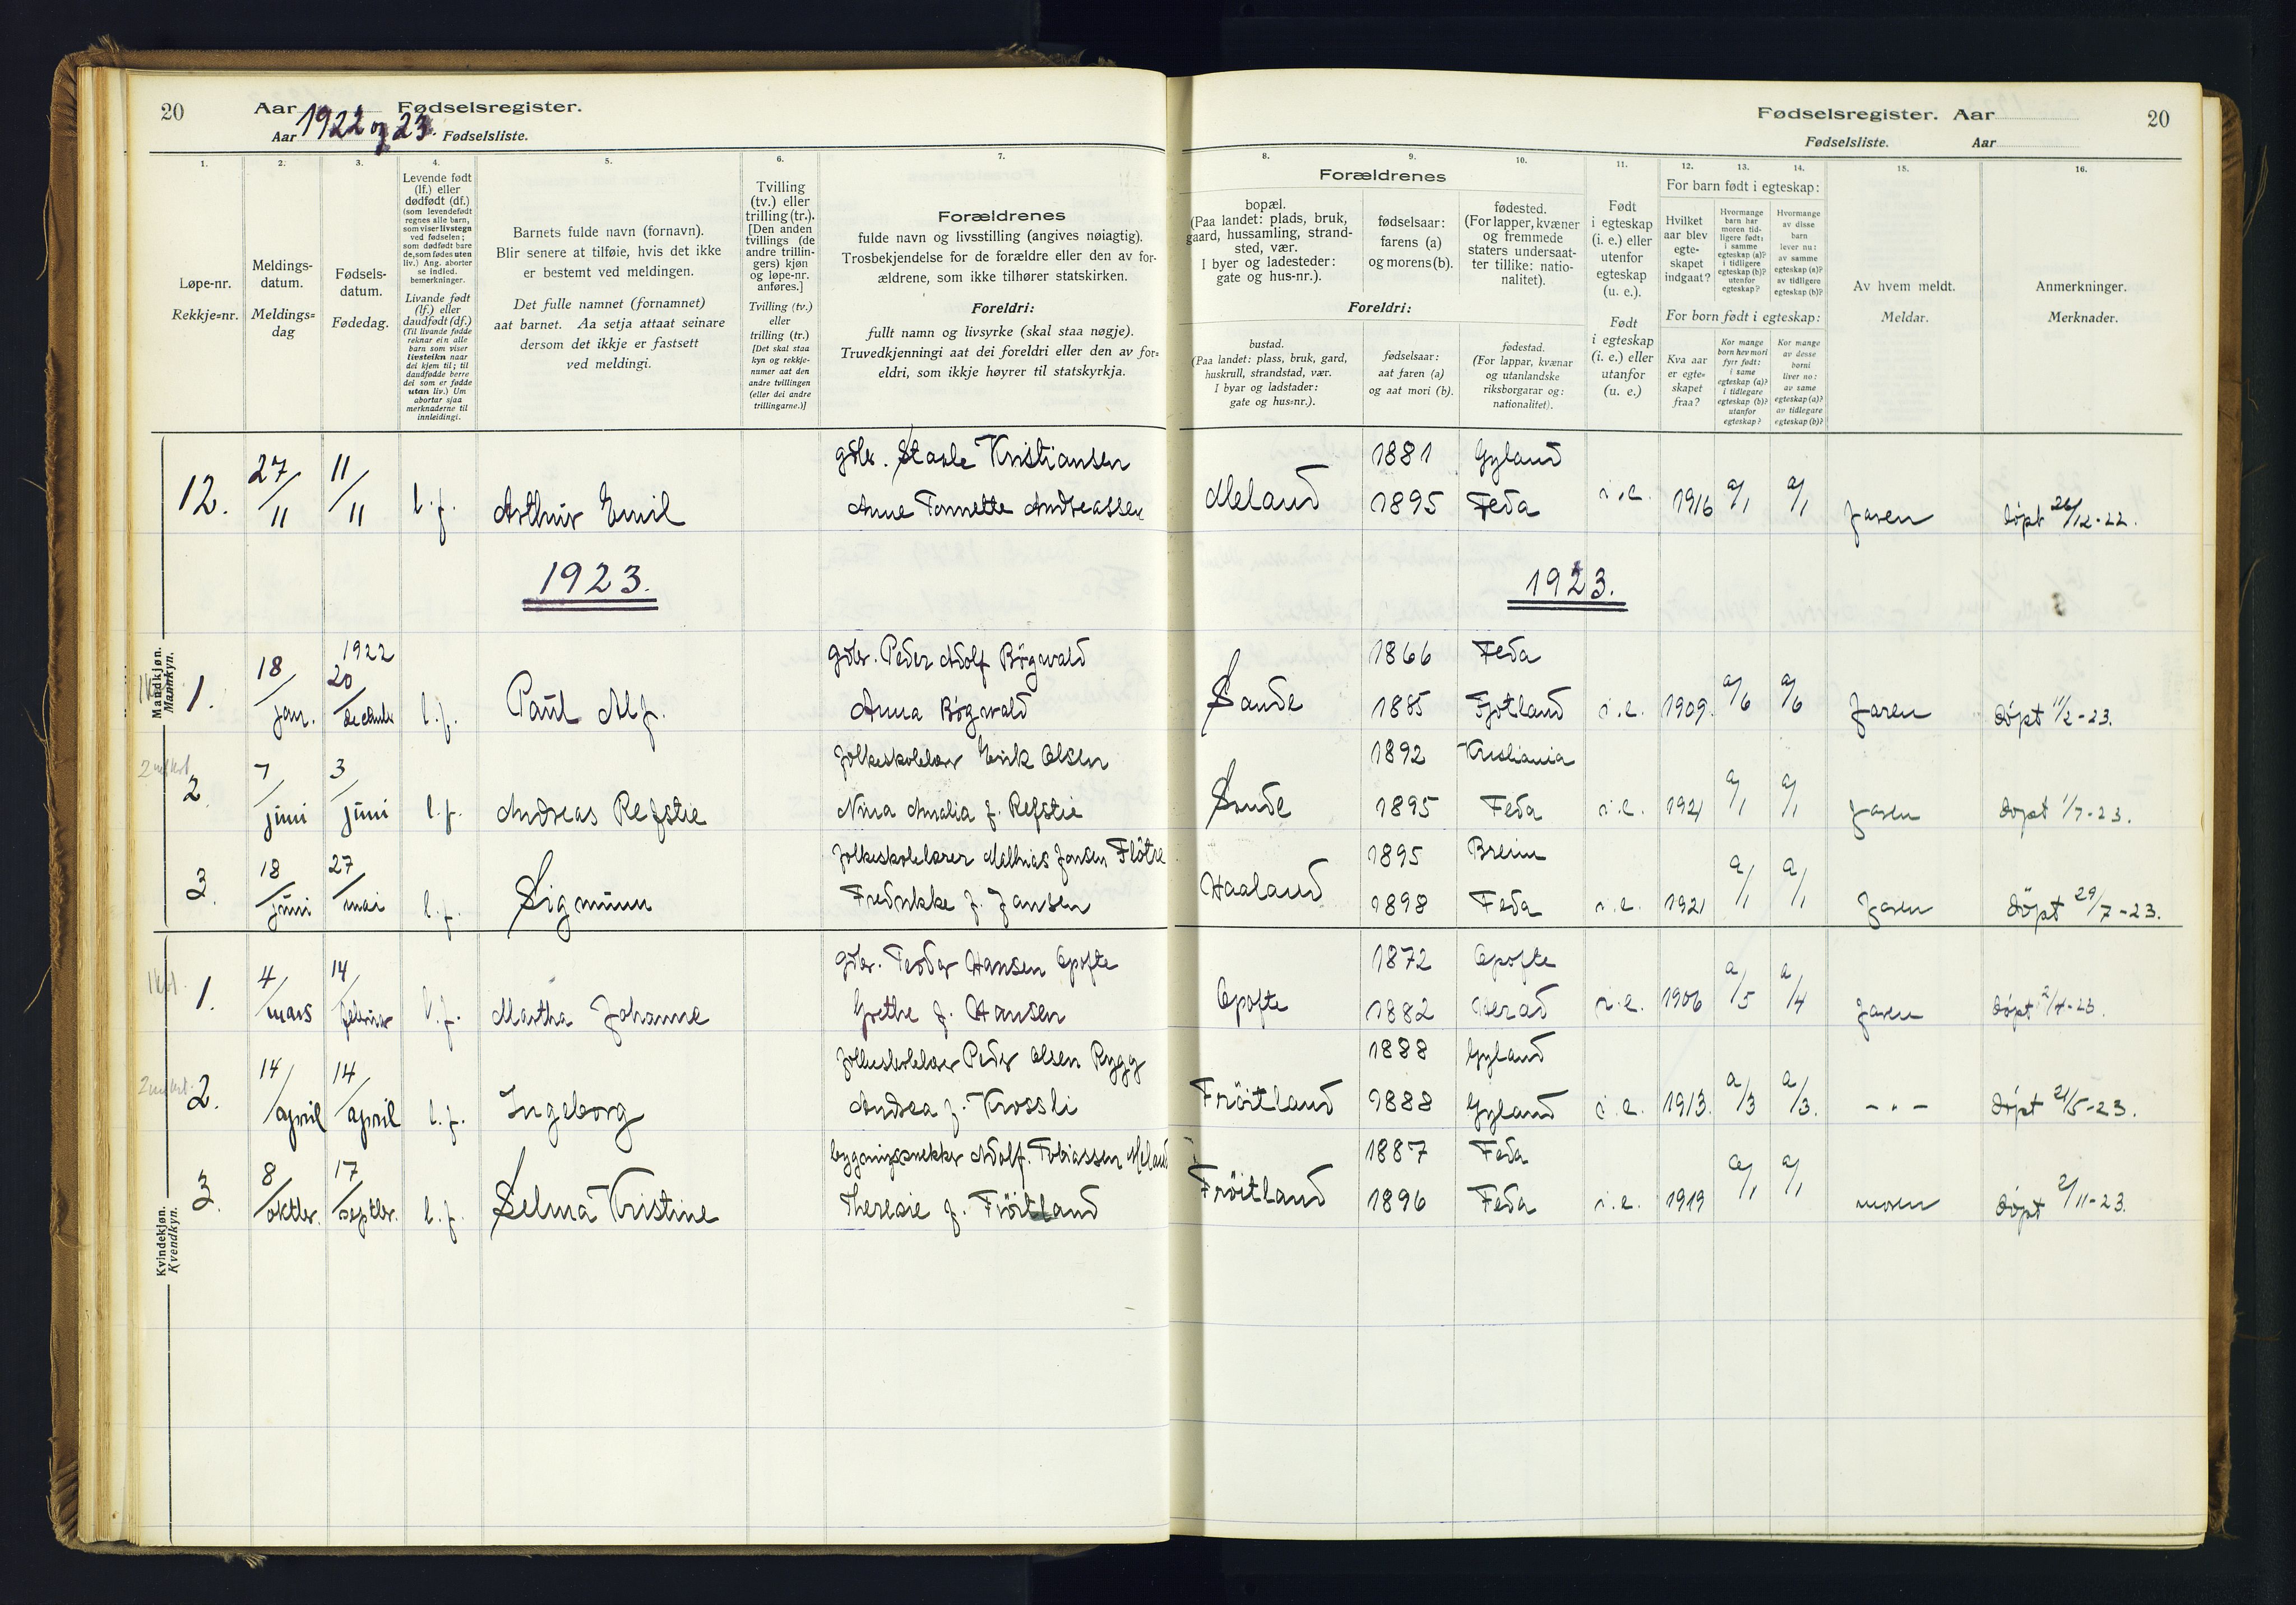 20
Aar 1922 og 23. Fødselsregister.
Aar Fødselsliste.
1.
Løpe-nr.
Rekkje=nr.
2.
Meldings-
datum.
Meldings=
dag
3.
Fødsels-
datum.
Fødedag.
4.
Levende født
(lf.) eller
dødfødt (df.)
(som levendefødt
regnes alle barn,
som viser livstegn
ved fødselen;
som dødfødt bare
de, som fødes uten
liv.) Ang. aborter
se indled.
bemerkninger.
Livande født
(lf.) eller
daudfødt (df.)
(Til livande fødde
reknar ein alle
barn som viser
livsteikn naar
dei kjem til; til
daudfødde berre
dei som er fødde
utan liv.) Um
abortar sjaa
merknaderne til
innleidingi.
5.
Barnets fulde navn (fornavn).
Blir senere at tilføie, hvis det ikke
er bestemt ved meldingen.
Det fulle namnet (fornamnet)
aat barnet. Aa setja attaat seinare
dersom det ikkje er fastsett
ved meldingi.
6.
Tvilling
(tv.) eller
trilling (tr.).
[Den anden
tvillings (de
andre trillin-
gers) kjøn
og løpe-nr.
anføres.]
Tvilling (tv.)
eller
trilling (tr.)
[Det skal staa
kyn og rekkje-
numer aat den
andre tvillingen
(eller dei andre
trillingarne.)]
7.
Forældrenes
fulde navn og livsstilling (angives nøiagtig).
Trosbekjendelse for de forældre eller den av for-
ældrene, som ikke tilhører statskirken.
Foreldri:
fullt namn og livsyrke (skal staa nøgje).
Truvedkjenningi aat dei foreldri eller den av for=
eldri, som ikkje høyrer til statskyrkja.
Fødselsregister. Aar 20
Fødselsliste. Aar
Forældrenes
8.
bopæl.
(Paa landet: plads, bruk,
gaard, hussamling, strand-
sted, vær.
I byer og ladesteder:
gate og hus-nr.).
9.
fødselsaar:
farens (a)
og morens (b).
10.
fødested.
(For lapper, kvæner
og fremmede
staters undersaat-
ter tillike: natio-
nalitet).
Foreldri:
bustad.
(Paa landet: plass, bruk, gard,
huskrull, strandstad, vær.
I byar og ladstader:
gate og hus=nr.).
fødselsaar:
aat faren (a)
og aat mori (b).
fødestad.
(For lappar, kvænar
og utanlandske
riksborgarar og:
nationalitet).
11.
Født
i egteskap
(i. e.) eller
utenfor
egteskap
(u. e.).
Født
i egteskap
(i. e.) eller
utanfor
(u. e.)
12. 13. 14.
For barn født i egteskap:
Hvilket
aar blev
egte-
skapet
indgaat?
Hvormange
barn har
moren tid-
ligere født:
i samme
egteskap (a)?
i tidligere
egteskap (b)?
utenfor
egteskap?
Hvormange
av disse
barn
lever nu:
av samme
egteskap (a)?
av tidligere
egteskap (b)?
For born født i egteskap:
Kva aar
er egte=
skapet
fraa?
Kor mange
born hev mori
fyrr født:
i same
egteskap (a)?
i tidlegare
egteskap (b)?
utanfor
egteskap?
Kor mange
av desse
borni
liver no:
av same
egteskap (a)?
av tidlegare
egteskap (b)?
15.
Av hvem meldt.
Meldar.
16.
Anmerkninger.
Merknader.
gdbr. Staale Kristiansen 1881 Gyland
12. 27/11 11/11 l.f. Arthur Emil Anne Tonnette Andreassen Meland 1895 Feda i.e. 1916 a/1 a/1 faren døpt 26/12-22.
1923. 1923.
Mandkjøn.
Mannkyn.
1922
gdbr. Peder Adolf Bögwald 1866 Feda
1. 18/jan. 20/december l.f. Paul Alf. Anna Bögwald Sande 1885 Fjotland i.e. 1909. a/6 a/6 faren døpt 11/2-23.
folkeskolelærer Erik Olsen 1892 Kristiania
2. 7/juni 3/juni l.f. Andreas Refstie Nina Amalia f. Refstie Sande 1895 Feda i.e. 1921 a/1 a/1 faren døpt 1/7-23.
folkeskolelærer Mathias Jansen Flötre 1895 Breim
3. 18/juni 27/mai l.f. Sigmunn Fredrikke f. Jansen Haaland 1898 Feda i.e. 1921 a/1 a/1 faren døpt 29/7-23.
gdbr. Teodor Hansen Opofte 1872 Opofte
1. 4/mars 14/februar l.f. Martha Johanne Grethe f. Hansen Opofte 1882 Herad i.e. 1906 a/5 a/4 faren døpt 2/4-23.
folkeskolelærer Peder Olsen Rygg 1888 Gyland
2. 14/april 14/april l.f. Ingeborg Andrea f. Krossli Fröitland 1888 Gyland i.e. 1913. a/3 a/3. - " - døpt 21/5-23.
bygningssnekker Adolf. Tobiassen Meland 1887 Feda
3. 8/oktbr. 17/septbr. l.f. Selma Kristine Theresie f. Fröitland Fröitland 1896 Feda i.e. 1919 a/1 a/1 moren døpt 2/11-23.
Kvindekjøn.
Kvendkyn.